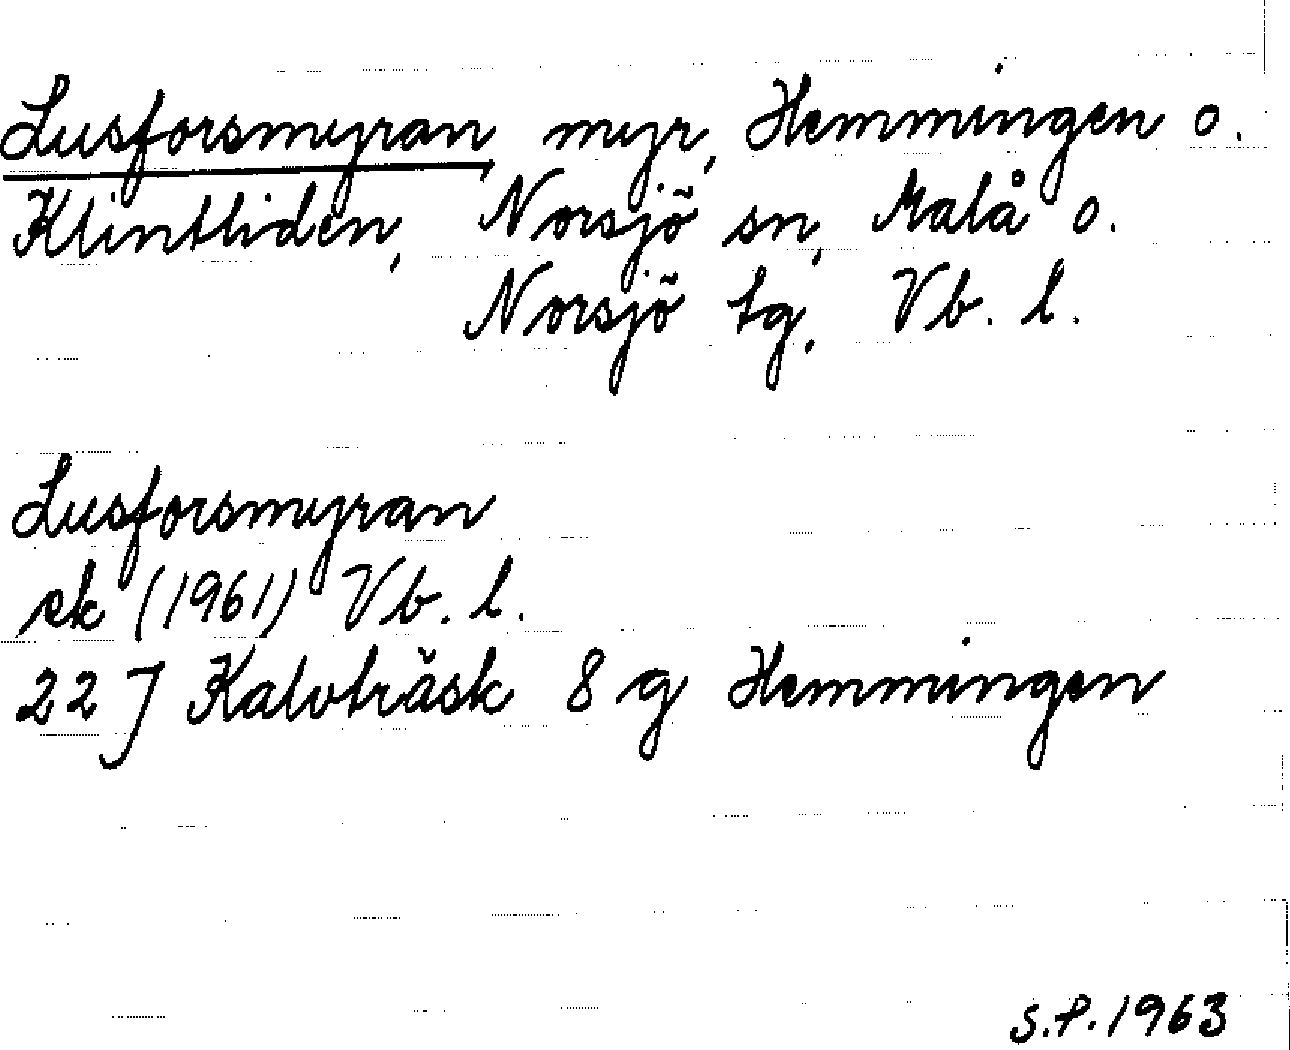 Lusforsmyran, myr, Hemmingen o.
Klintliden, Norsjö sn, Malå o.
Norsjö tg, Vb. l.
Lusforsmyran
ek (1961) Vb. l.
22 J Kalvträsk 8 g Hemmingen
S.P. 1963